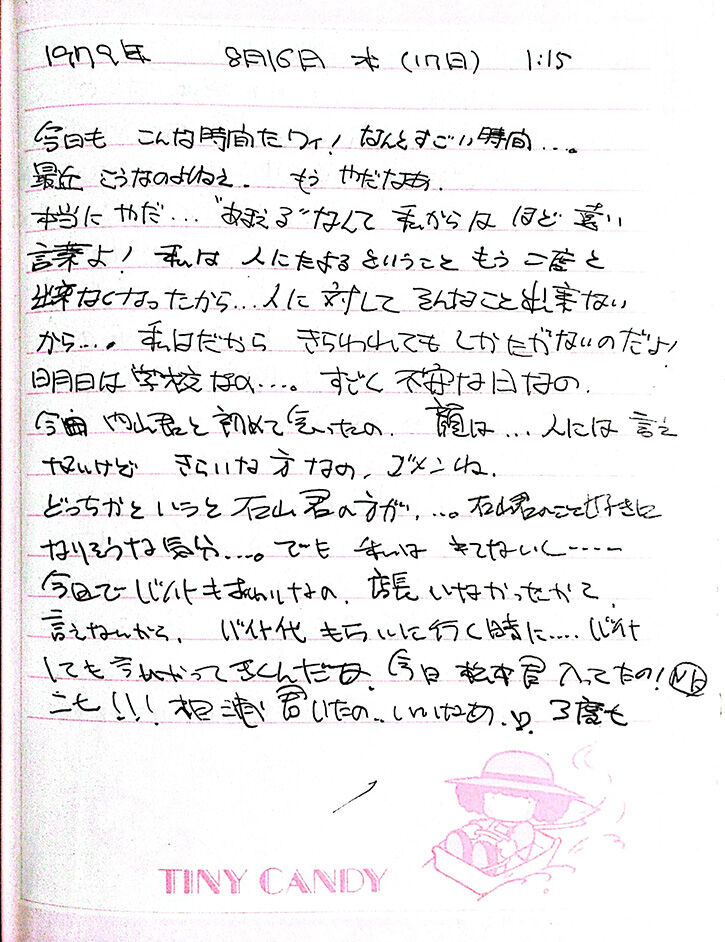 1979年 8月16日 木 (17日) 1:15
今日も こんな時間だワイ! なんとすごい時間....
最近 こうなのよねえ. もう やだなあ.
本当に やだ... "あまえる" なんて 私からは ほど遠い
言葉よ! 私は 人にたよるということ もう 二度と
出来なくなったから... 人に 対して そんなこと出来ない
から.... 私はだから きらわれても しかたがないのだよ!
明日は 学校なの.... すごく 不安な日なの.
今日 内山君と 初めて会ったの. 顔は ... 人には 言え
ないけど きらいな方なの, ゴメンね.
どっちかというと 石山君の方が.... 石山君のこと好きに
なりそうな気分.... でも 私は もてないし----
今日で バイトもおわりなの. 店長 いなかったから
言えないから, バイト代 もらいに行く時に.... バイト
しても 言いかって きくんだな. 今日 松本君 入ってたの!
こも!!! 相浦君 いたの.. いいなあ 3度も
TINY CANDY